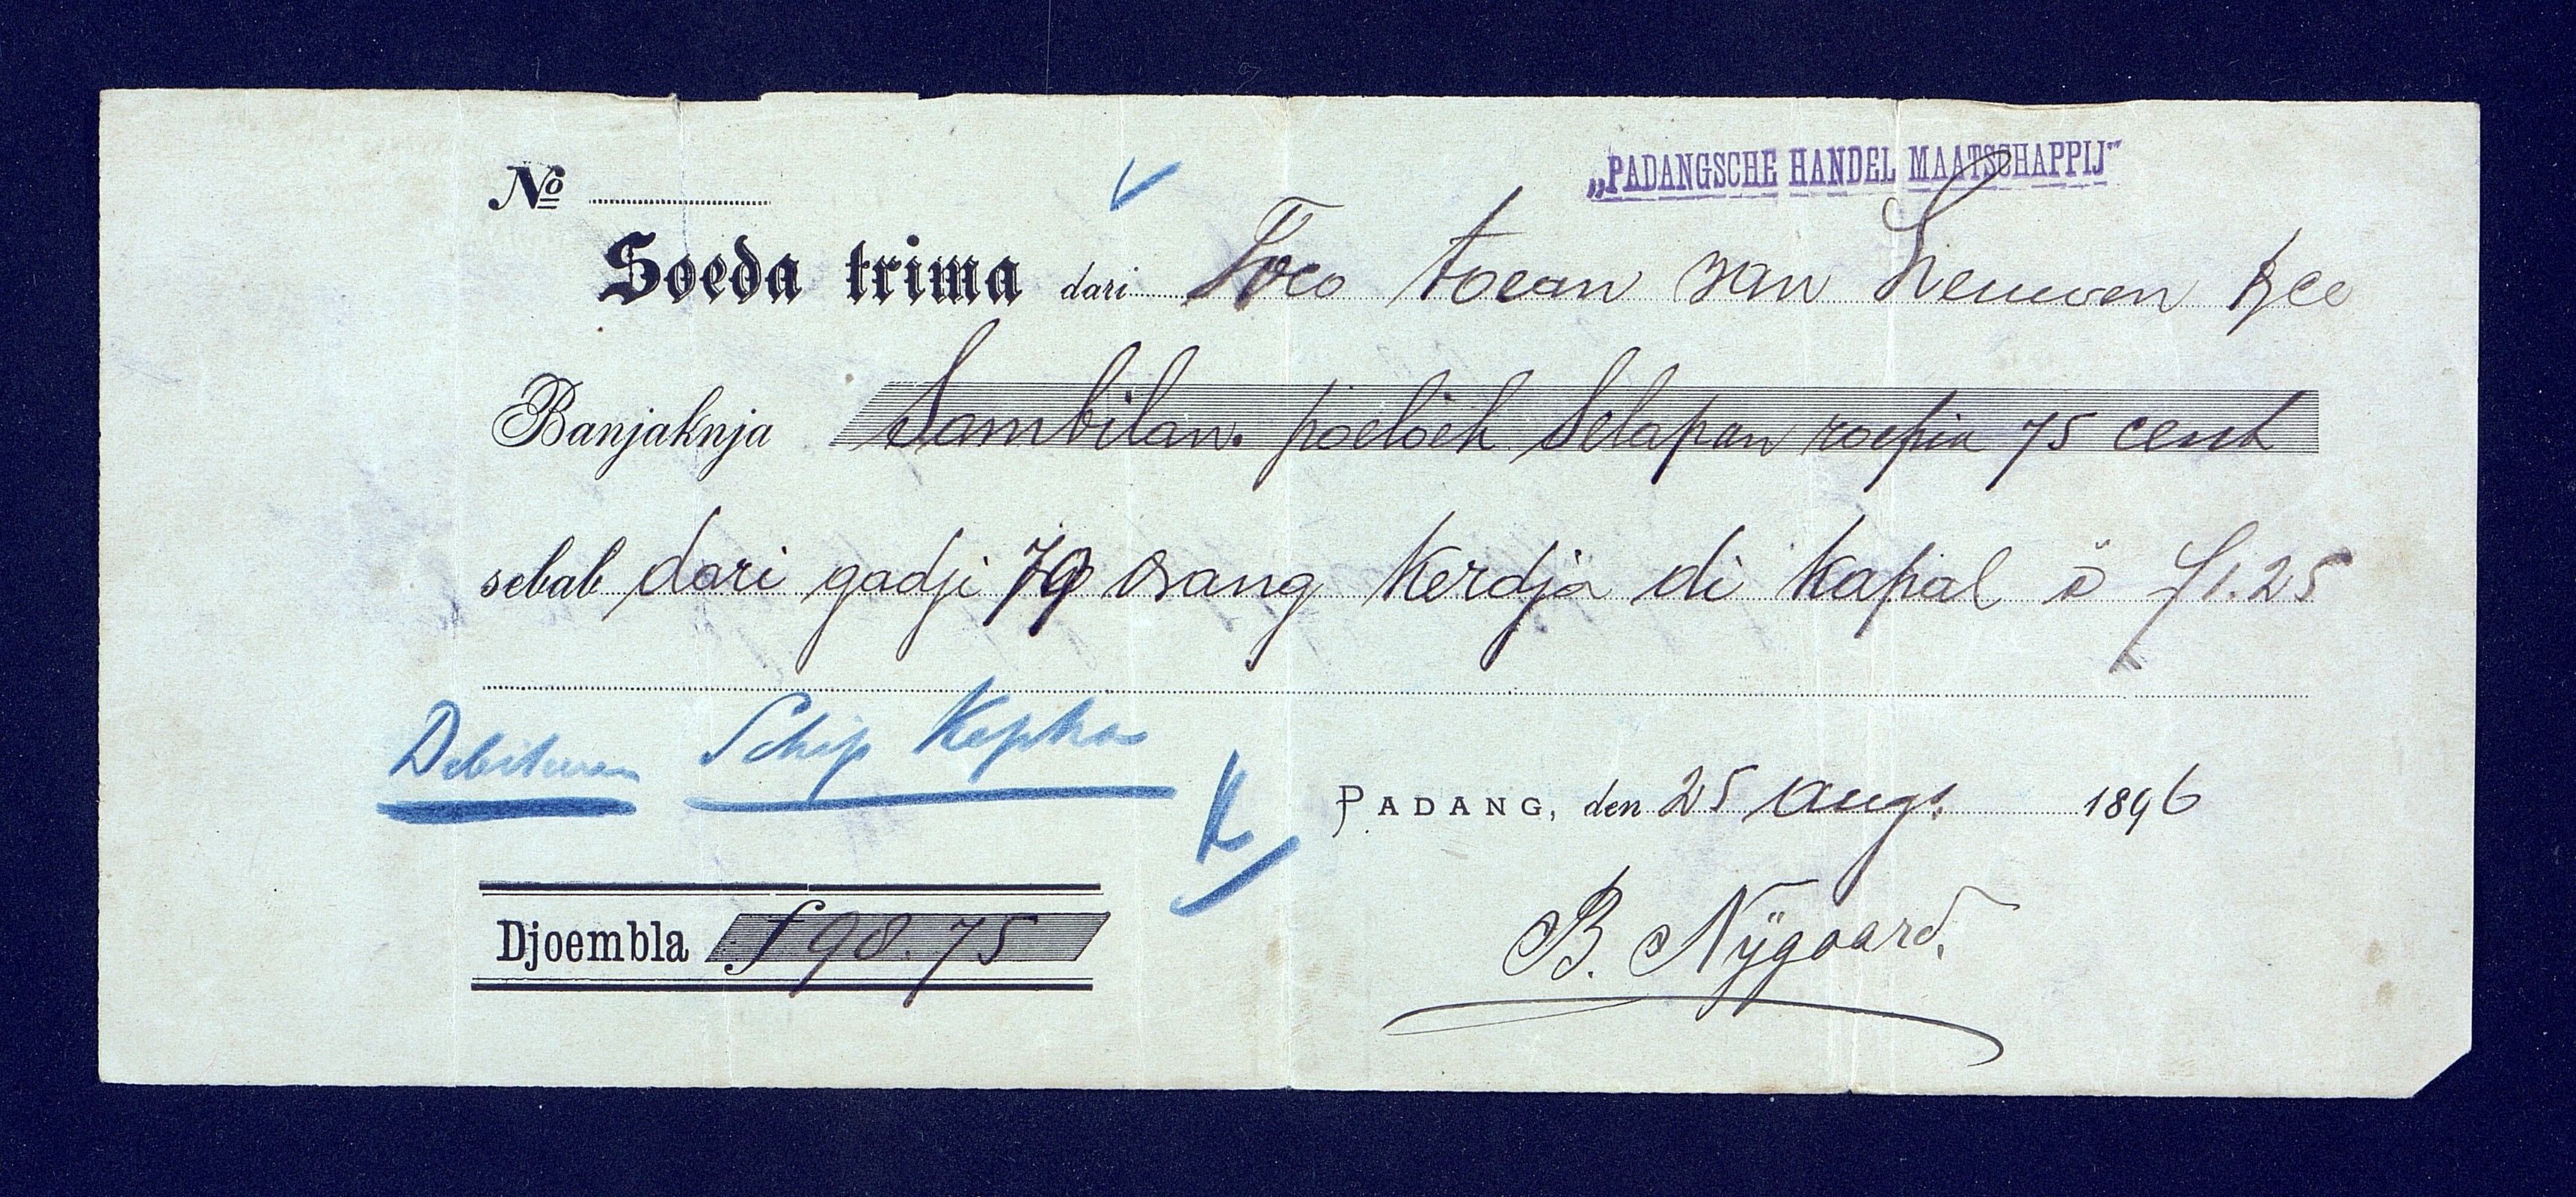 „PADANGSCHE HANDEL MAATSCHAPPIJ"
No
Soeda trima dari Toco toean van Leeuwen & Co
Banjaknja Sambilan poeloeh Selapan roepia 75 cent
sebab dari gadji 79 orang Kerdja di Kapal à f1.25
Debiteuren Schip Kepha
K
PADANG, den 25 Augs. 1896
Djoembla f 98.75
B. Nÿgaard.